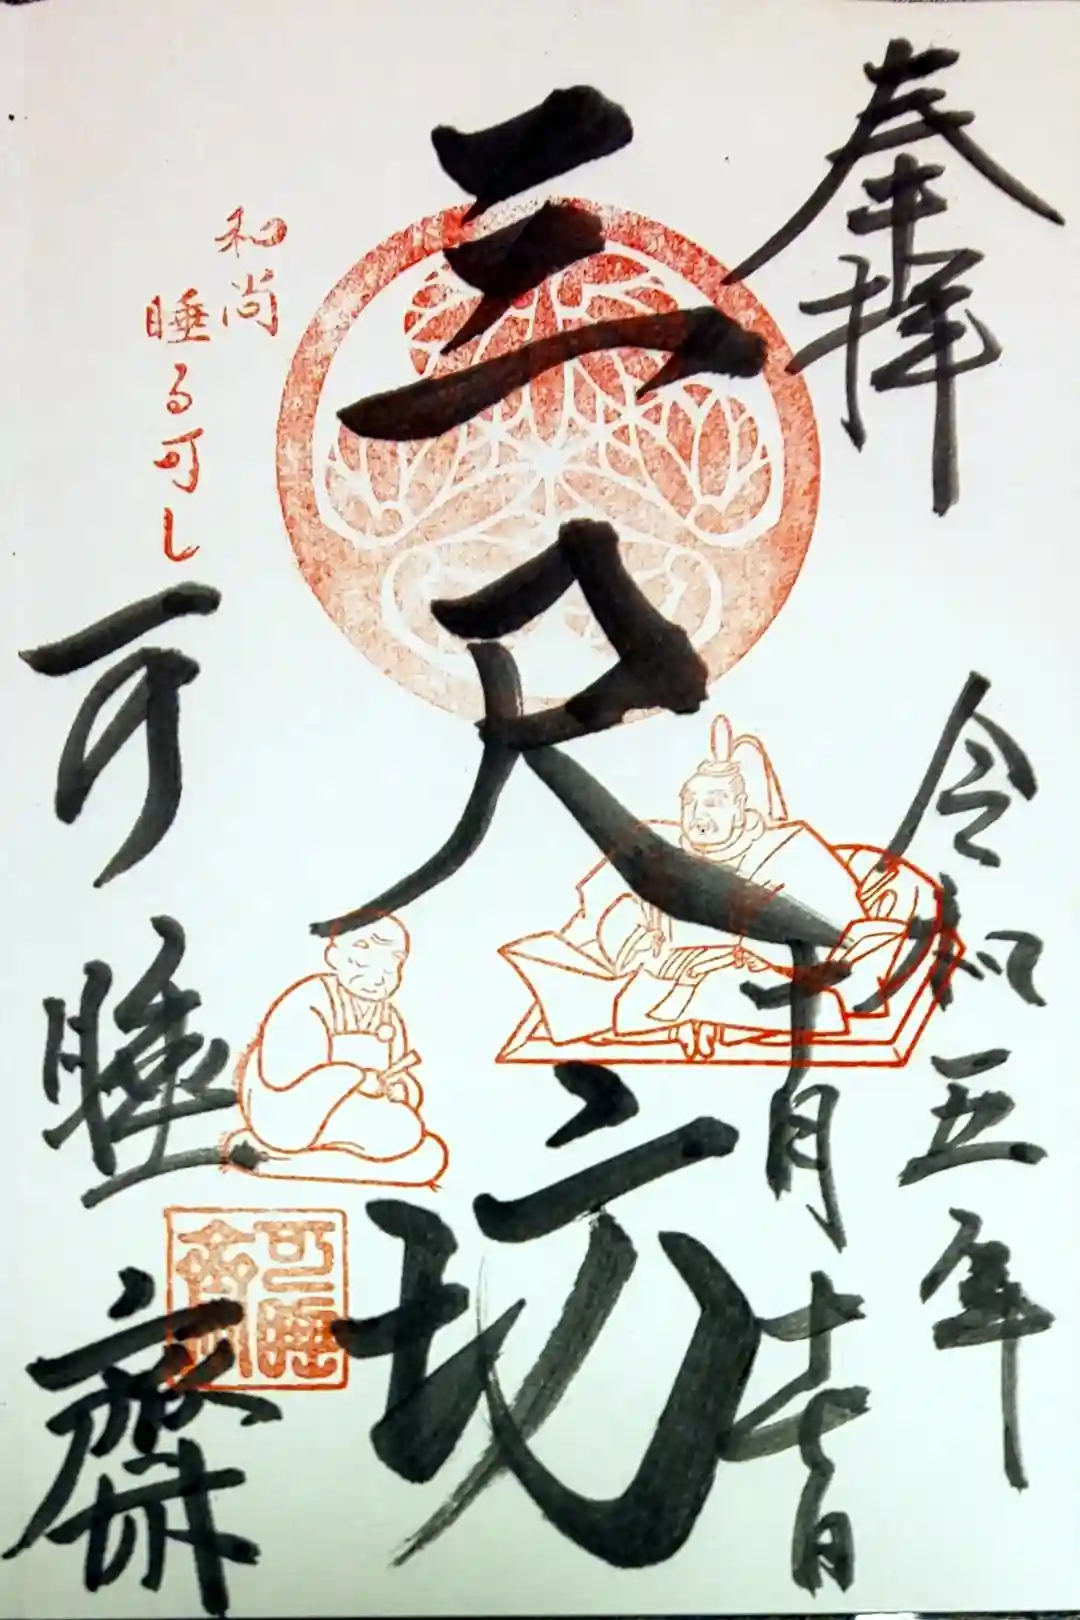 奉拝
令和五年
十月十七日
三尺坊
和尚
睡る可し
可睡齋
可睡
齋